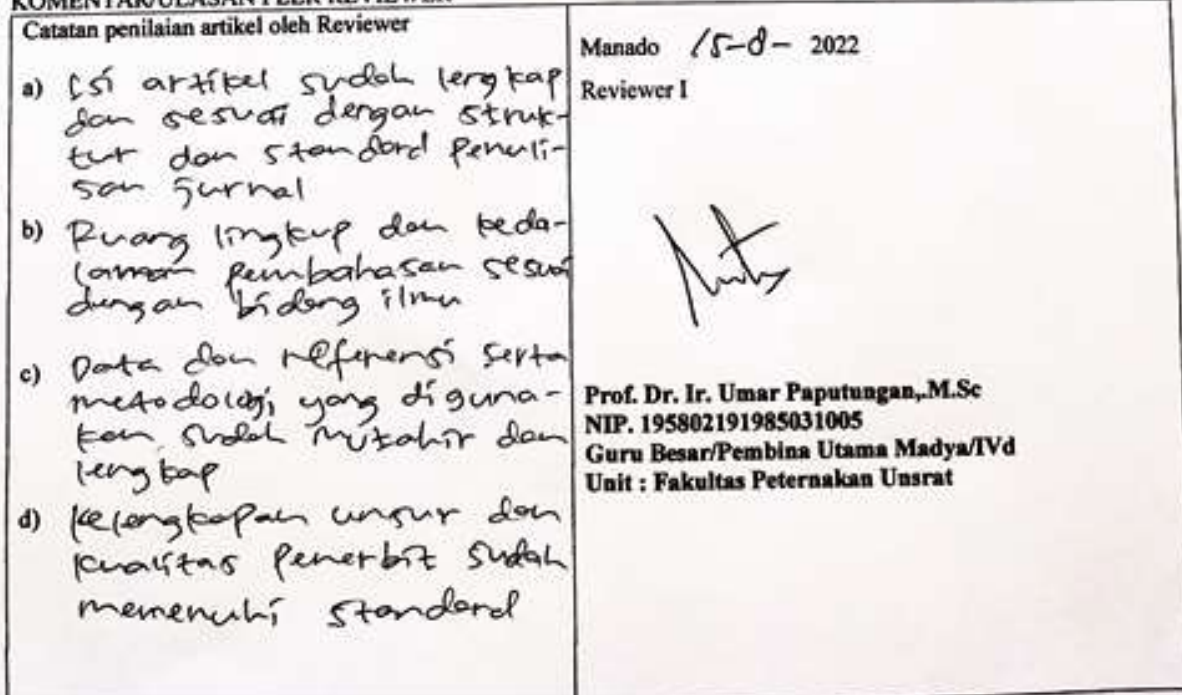 KOMENTAR/ULASAN PEER REVIEWER
Catatan penilaian artikel oleh Reviewer
a) Isi artikel sudah lengkap
dan sesuai dengan struk-
tur dan standard penuli-
san jurnal
b) Ruang lingkup dan keda-
laman pembahasan sesuai
dengan bidang ilmu
c) Data dan referensi serta
metodologi yang diguna-
kan sudah mutahir dan
lengkap
d) Kelengkapan unsur dan
kualitas penerbit sudah
memenuhi standard
Manado 15-8- 2022
Reviewer I
Prof. Dr. Ir. Umar Paputungan,.M.Sc
NIP. 195802191985031005
Guru Besar/Pembina Utama Madya/IVd
Unit : Fakultas Peternakan Unsrat